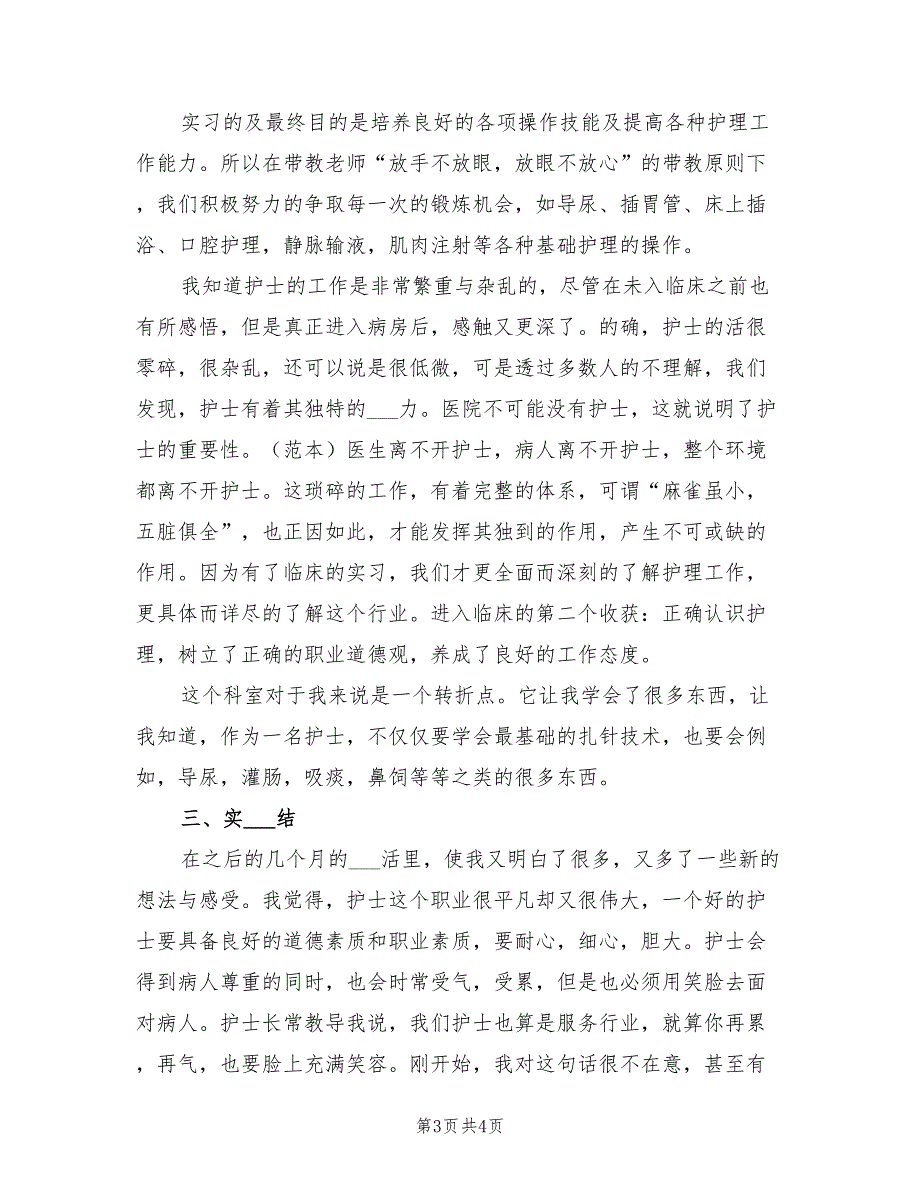 实习的及最终目的是培养良好的各项操作技能及提高各种护理工
作能力。所以在带教老师“放手不放眼，放眼不放心”的带教原则下
，我们积极努力的争取每一次的锻炼机会，如导尿、插胃管、床上插
浴、口腔护理，静脉输液，肌肉注射等各种基础护理的操作。
我知道护士的工作是非常繁重与杂乱的，尽管在未入临床之前也
有所感悟，但是真正进入病房后，感触又更深了。的确，护士的活很
零碎，很杂乱，还可以说是很低微，可是透过多数人的不理解，我们
发现，护士有着其独特的___力。医院不可能没有护士，这就说明了护
士的重要性。（范本）医生离不开护士，病人离不开护士，整个环境
都离不开护士。这琐碎的工作，有着完整的体系，可谓“麻雀虽小，
五脏俱全”，也正因如此，才能发挥其独到的作用，产生不可或缺的
作用。因为有了临床的实习，我们才更全面而深刻的了解护理工作，
更具体而详尽的了解这个行业。进入临床的第二个收获：正确认识护
理，树立了正确的职业道德观，养成了良好的工作态度。
这个科室对于我来说是一个转折点。它让我学会了很多东西，让
我知道，作为一名护士，不仅仅要学会最基础的扎针技术，也要会例
如，导尿，灌肠，吸痰，鼻饲等等之类的很多东西。
三、实___结
在之后的几个月的___活里，使我又明白了很多，又多了一些新的
想法与感受。我觉得，护士这个职业很平凡却又很伟大，一个好的护
士要具备良好的道德素质和职业素质，要耐心，细心，胆大。护士会
得到病人尊重的同时，也会时常受气，受累，但是也必须用笑脸去面
对病人。护士长常教导我说，我们护士也算是服务行业，就算你再累
，再气，也要脸上充满笑容。刚开始，我对这句话很不在意，甚至有
第3页共4页